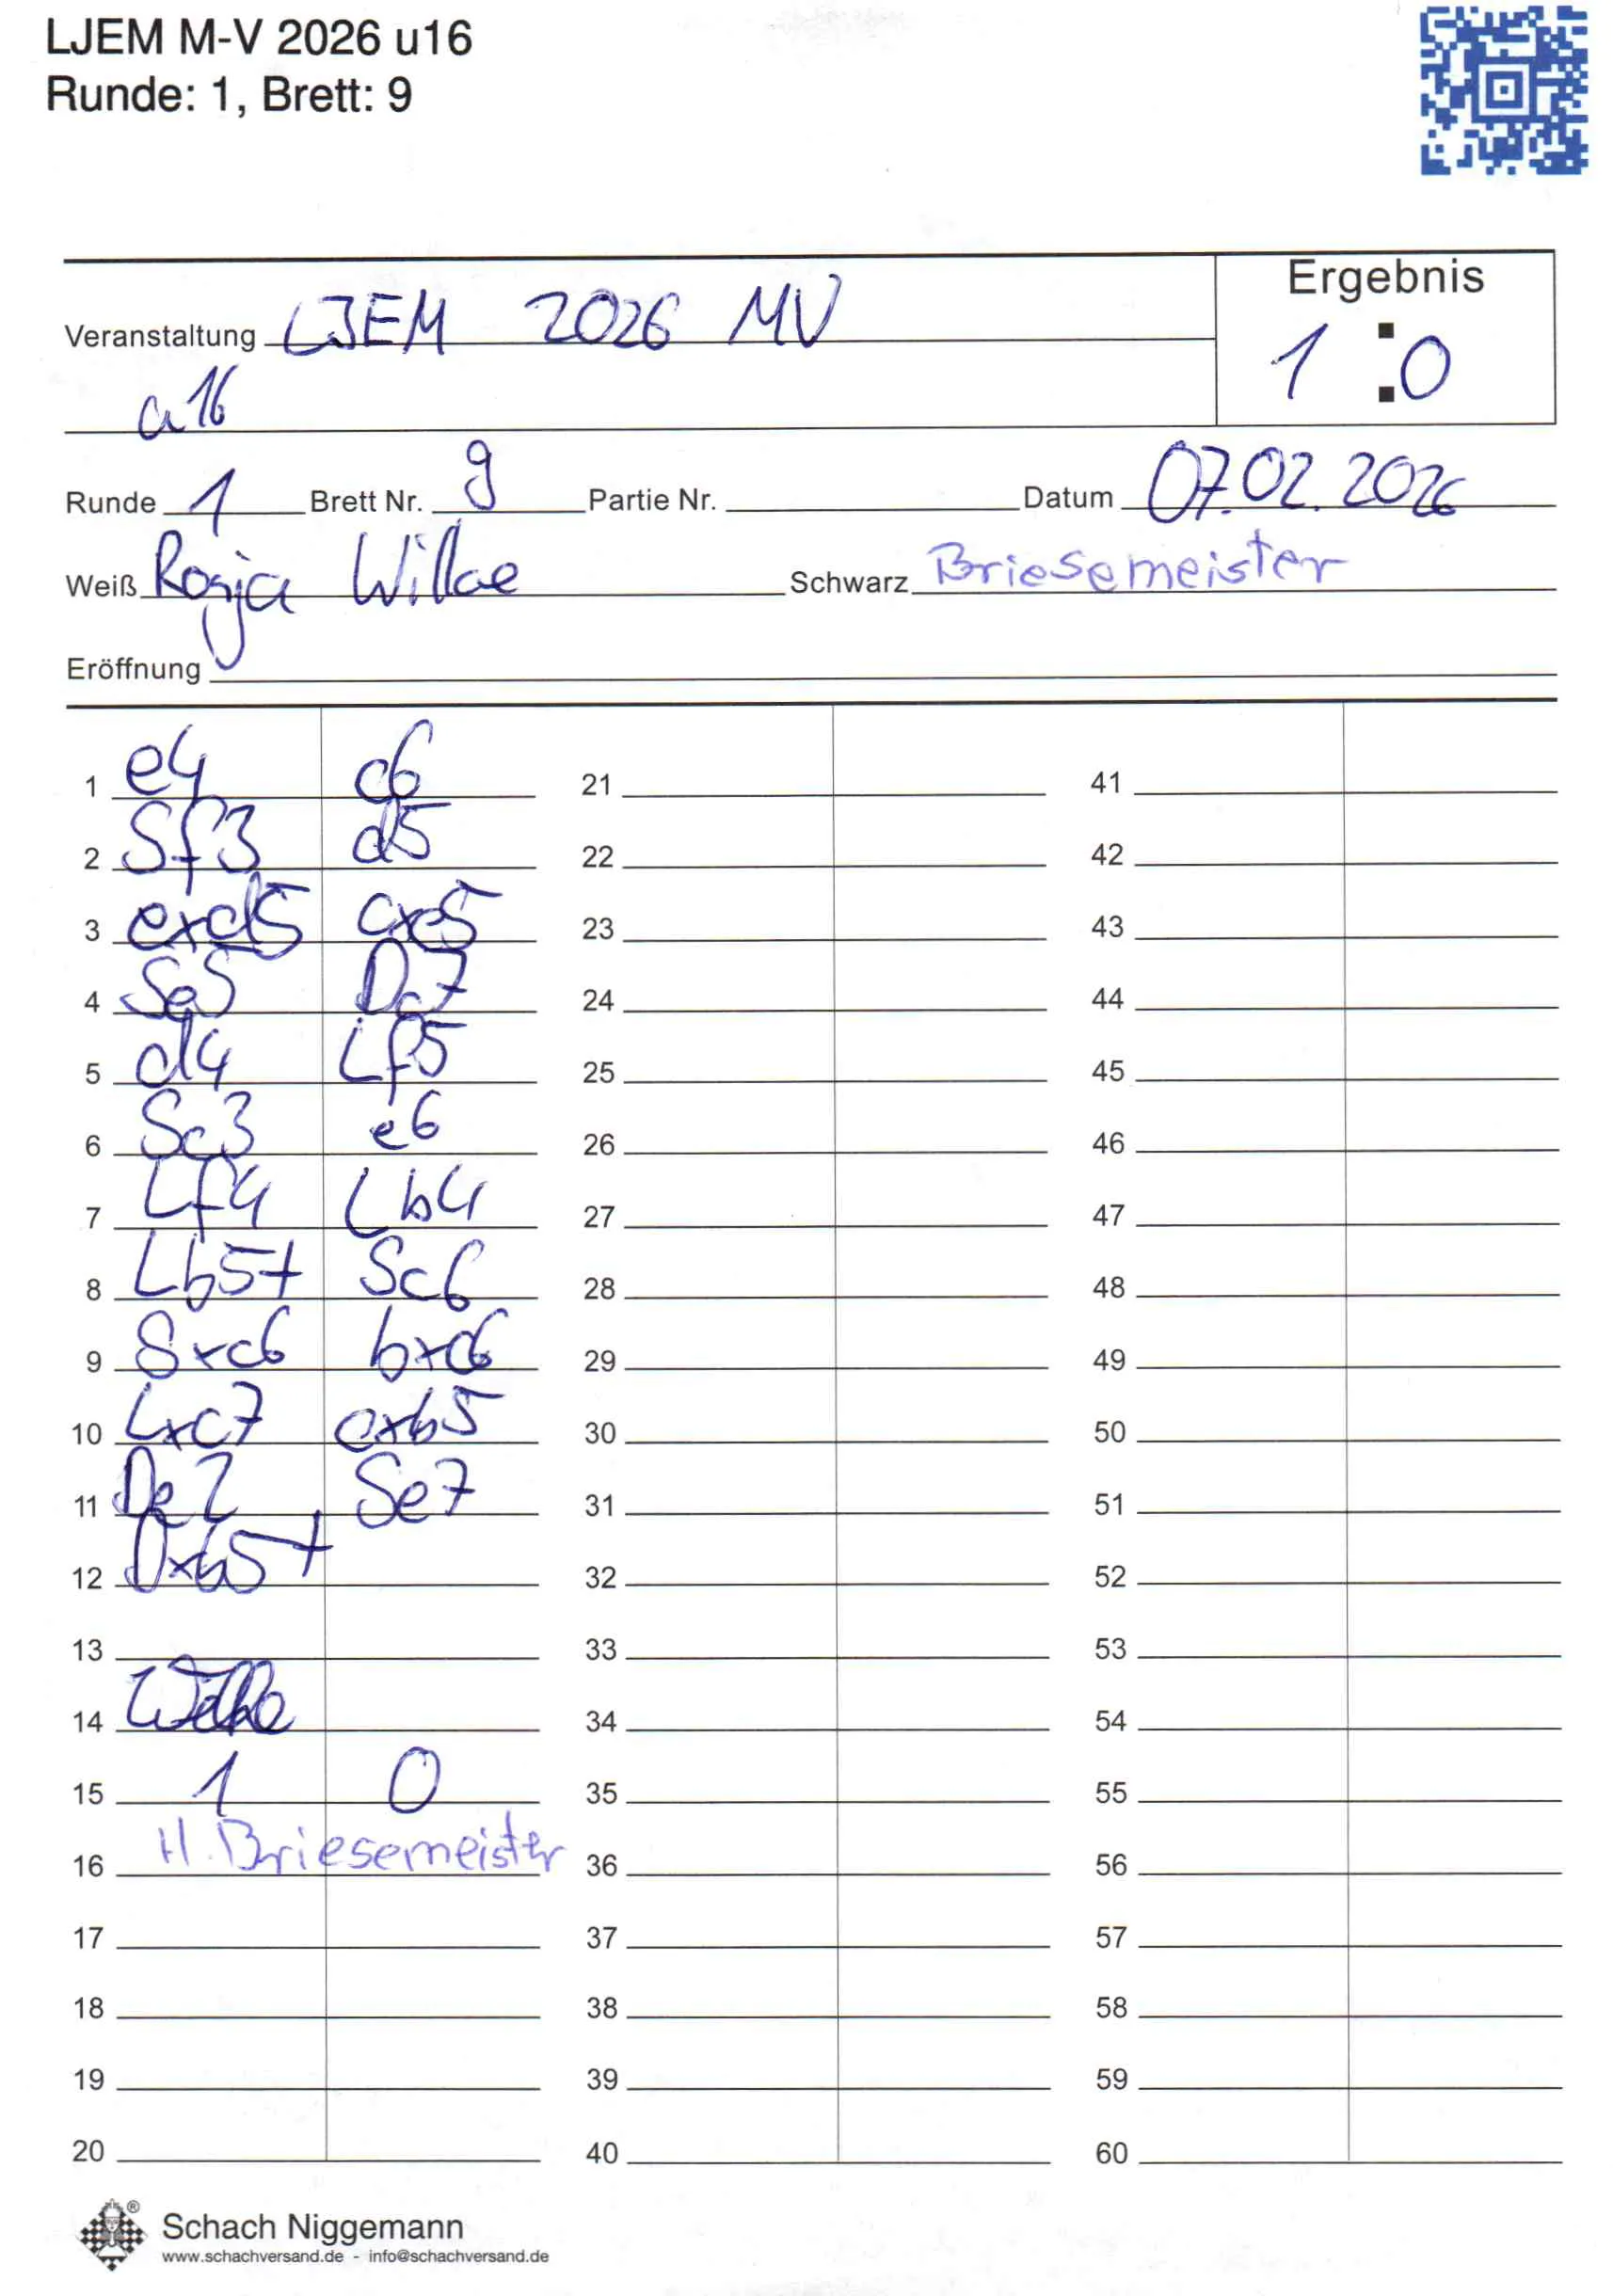 LJEM M-V 2026 u16
Runde: 1, Brett: 9
Ergebnis
Veranstaltung LJEM 2026 MV
1 : 0
u16
Runde 1 Brett Nr. 9 Partie Nr. Datum 07.02.2026
Weiß Ronja Wilke Schwarz Briesemeister
Eröffnung
1 e4 c6 21 41
2 Sf3 d5 22 42
3 exd5 cxd5 23 43
4 Se5 Dc7 24 44
5 d4 Lf5 25 45
6 Sc3 e6 26 46
7 Lf4 Lb4 27 47
8 Lb5+ Sc6 28 48
9 Sxc6 bxc6 29 49
10 Lxc7 cxb5 30 50
11 De2 Se7 31 51
12 Dxb5+ 32 52
13 33 53
14 Wilke 34 54
15 1 0 35 55
16 H. Briesemeister 36 56
17 37 57
18 38 58
19 39 59
20 40 60
Schach Niggemann
www.schachversand.de - info@schachversand.de